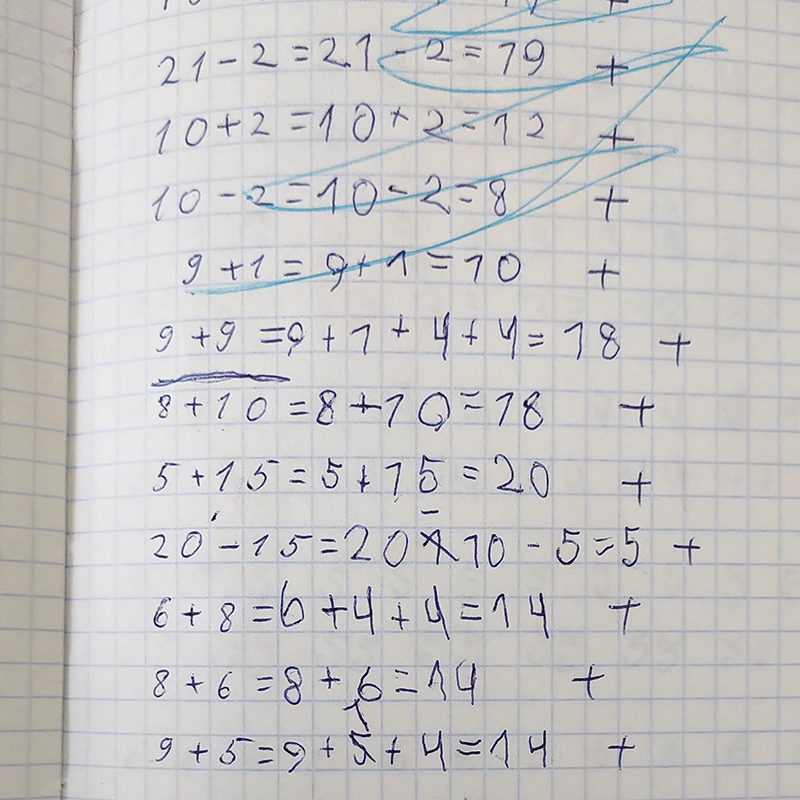 21-2=21-2=19 +
10+2=10+2=12 +
10-2=10-2=8 +
9+1=9+1=10 +
9+9=9+1+4+4=18 +
8+10=8+10=18 +
5+15=5+15=20 +
20-15=20-10-5=5 +
6+8=6+4+4=14 +
8+6=8+6=14 +
9+5=9+1+4=14 +